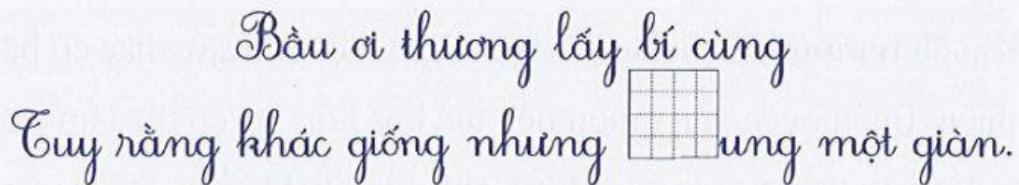 Bầu ơi thương lấy bí cùng
Tuy rằng khác giống nhưng ung một giàn.